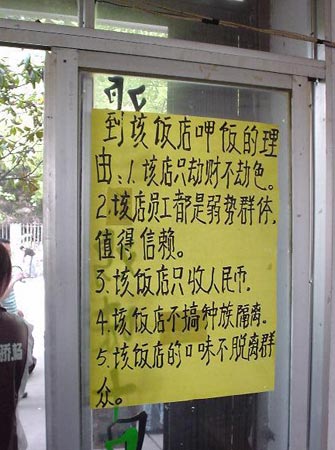 到该饭店呷饭的理
由:1.该店只劫财不劫色。
2.该店员工都是弱势群体,
值得信赖。
3.该饭店只收人民币.
4.该饭店不搞种族隔离.
5.该饭店的口味不脱离群
众。